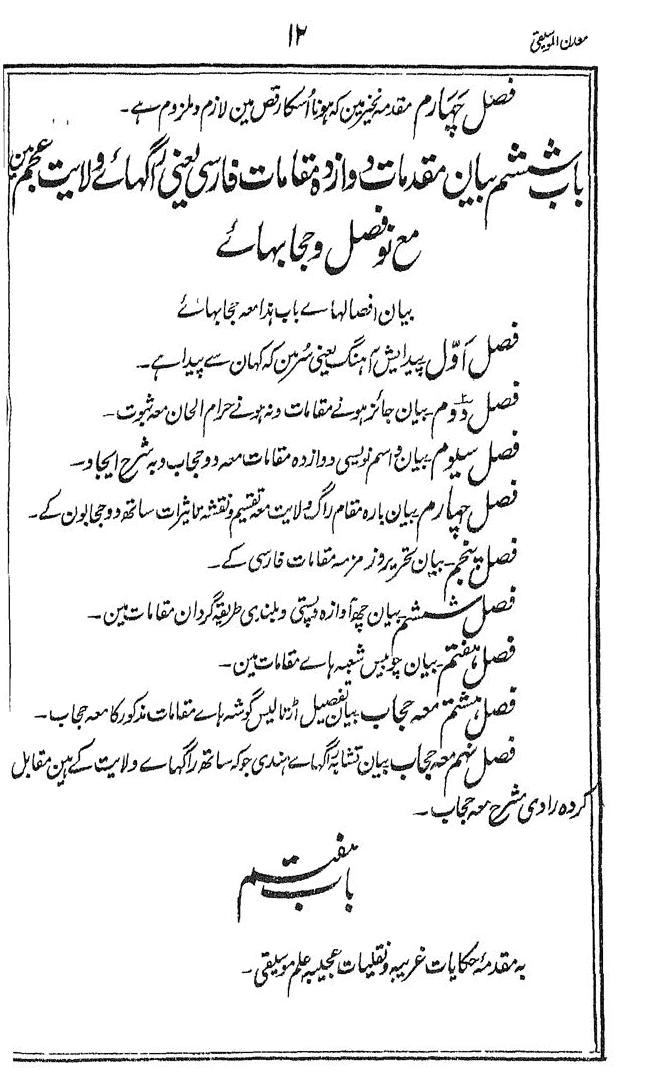 معدن الموسیقی
۱۲
فصل چہارم مقدمہ نخیز مین کہ ہونا اُسکا رقص مین لازم و ملزوم ہے۔
باب ششم بیان مقدمات دوازدہ مقامات فارسی یعنی راگہائے ولایت عجم مین
مع نو فصل و حجابہائے
بیان افصالہاے باب ہذا معہ حجابہائے
فصل اوّل پیدایش آہنگ یعنی سُر مین کہ کہان سے پیدا ہے۔
فصل دوم۔ بیان جائز ہونے مقامات و نہ ہونے حرام الحان معہ ثبوت۔
فصل سیوم۔ بیان و اسم نویسی دوازدہ مقامات معہ دو حجاب و بہ شرح ایجاد۔
فصل چہارم بیان بارہ مقام راگ ولایت معہ تقسیم و نقشہ تاثیرات ساتھ دو حجابون کے۔
فصل پنجم۔ بیان تحریر و زمزمہ مقامات فارسی کے۔
فصل ششم۔ بیان چھ آوازہ و پستی و بلندی طریقہ گردان مقامات مین۔
فصل ہفتم۔ بیان چوبیس شعبہ ہاے مقامات مین۔
فصل ہشتم معہ حجاب بیان تفصیل اڑتالیس گوشہ ہاے مقامات مذکور کا معہ حجاب۔
فصل نہم معہ حجاب بیان تشابہ راگہاے ہندی جو کہ ساتھ راگہاے ولایت کے ہین مقابل
کردہ راوی مشرح معہ حجاب۔
باب ہفتم
بہ مقدمۂ حکایات غریبہ و نقلیات عجیبہ علم موسیقی۔